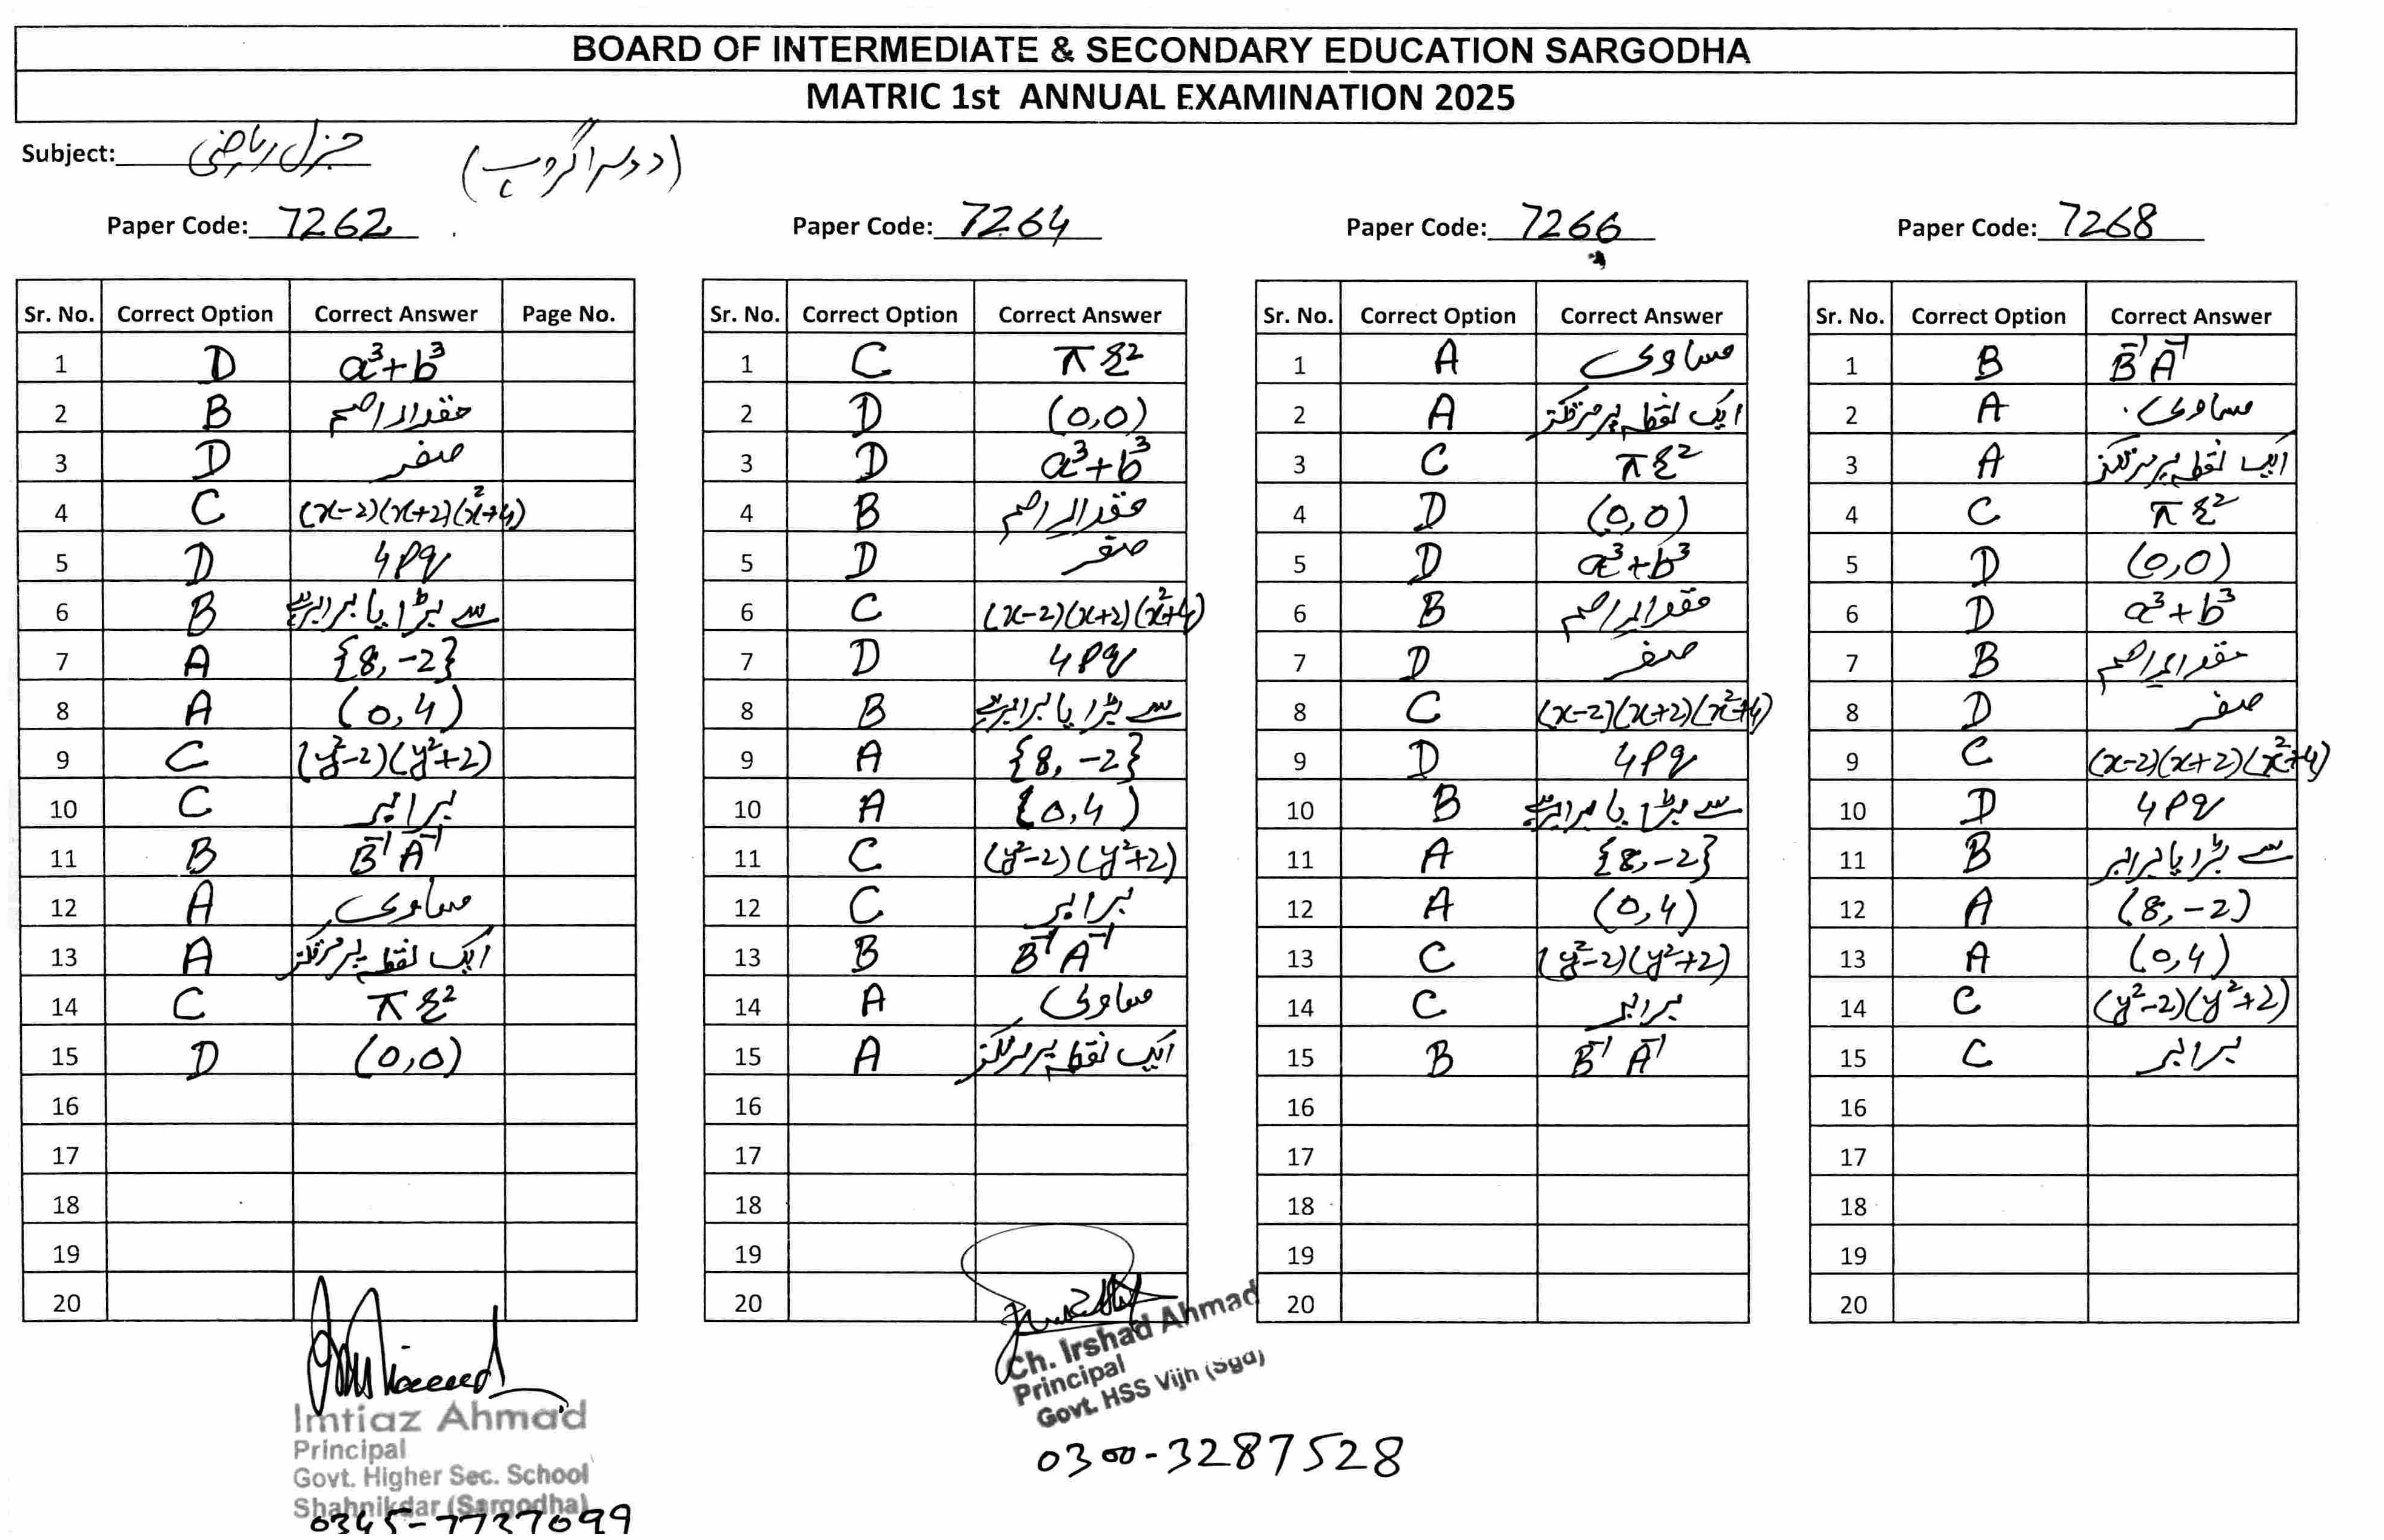 BOARD OF INTERMEDIATE & SECONDARY EDUCATION SARGODHA
MATRIC 1st ANNUAL EXAMINATION 2025
Subject: جنرل ریاضی (دوسرا گروپ)
Paper Code: 7262 Paper Code: 7264 Paper Code: 7266 Paper Code: 7268
Sr. No. Correct Option Correct Answer Page No. Sr. No. Correct Option Correct Answer Sr. No. Correct Option Correct Answer Sr. No. Correct Option Correct Answer
1 D a³+b³ 1 C π r² 1 A مساوی 1 B B⁻¹ A⁻¹
2 B مقدار اصم 2 D (0,0) 2 A ایک نقطہ پر مرتکز 2 A مساوی
3 D صفر 3 D a³+b³ 3 C π r² 3 A ایک نقطہ پر مرتکز
4 C (x-2)(x+2)(x²+4) 4 B مقدار اصم 4 D (0,0) 4 C π r²
5 D 4pq 5 D صفر 5 D a³+b³ 5 D (0,0)
6 B سے بڑا یا برابر ہے 6 C (x-2)(x+2)(x²+4) 6 B مقدار اصم 6 D a³+b³
7 A {8,-2} 7 D 4pq 7 D صفر 7 B مقدار اصم
8 A (0,4) 8 B سے بڑا یا برابر ہے 8 C (x-2)(x+2)(x²+4) 8 D صفر
9 C (y²-2)(y²+2) 9 A {8,-2} 9 D 4pq 9 C (x-2)(x+2)(x²+4)
10 C برابر 10 A {0,4) 10 B سے بڑا یا برابر ہے 10 D 4pq
11 B B⁻¹ A⁻¹ 11 C (y²-2)(y²+2) 11 A {8,-2} 11 B سے بڑا یا برابر
12 A مساوی 12 C برابر 12 A (0,4) 12 A (8,-2)
13 A ایک نقطہ پر مرتکز 13 B B⁻¹ A⁻¹ 13 C (y²-2)(y²+2) 13 A (0,4)
14 C π r² 14 A مساوی 14 C برابر 14 C (y²-2)(y²+2)
15 D (0,0) 15 A ایک نقطہ پر مرتکز 15 B B⁻¹ A⁻¹ 15 C برابر
16 16 16 16
17 17 17 17
18 18 18 18
19 19 19 19
20 20 20 20
Imtiaz Ahmad
Principal
Govt. Higher Sec. School
Shahnikdar (Sargodha)
0345-7737099
Ch. Irshad Ahmad
Principal
Govt. HSS Vijh (Sgd)
0300-3287528